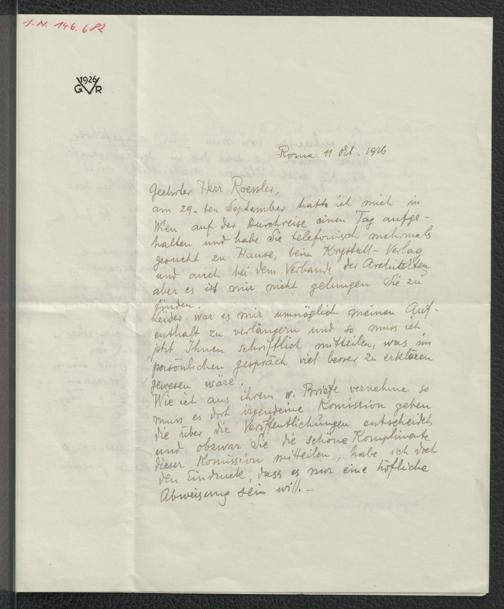 I.N. 146.682
1926
GVR
Roma 11 Okt. 1926
Geehrter Herr Roessler,
am 29-ten September hatte ich mich in
Wien auf der Durchreise einen Tag aufge-
halten und habe Sie telefonisch mehrmals
gesucht zu Hause, beim Krystall-Verlag
und auch bei dem Verbande der Architekten
aber es ist mir nicht gelungen Sie zu
finden.
Leider war es mir unmöglich meinen Auf-
enthalt zu verlängern und so muss ich
jetzt Ihnen schriftlich mitteilen, was im
persönlichen gespräch viel besser zu erklären
gewesen wäre.
Wie ich aus ihrem w. Briefe vernehme so
muss es dort irgendeine Komission geben
die über die Veröffentlichungen entscheidet
und obzwar Sie die schöne Komplimente
dieser Komission mitteilen, habe ich doch
den Eindruck, dass es nur eine höfliche
Abweisung sein will.-